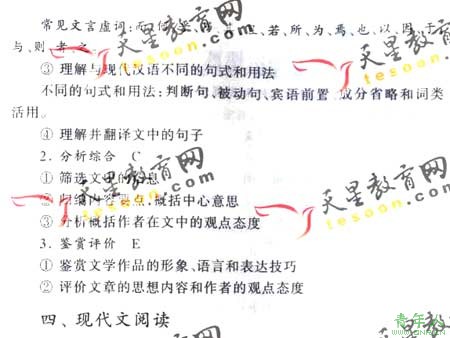 常见文言虚词:而、何、乎、若、所、为、焉、也、以、因、于
与、则、者、之
③ 理解与现代汉语不同的句式和用法
不同的句式和用法:判断句、被动句、宾语前置、成分省略和词类
活用。
④ 理解并翻译文中的句子
2. 分析综合 C
① 筛选文中的信息
② 归纳内容要点,概括中心意思
③ 分析概括作者在文中的观点态度
3. 鉴赏评价 E
① 鉴赏文学作品的形象、语言和表达技巧
② 评价文章的思想内容和作者的观点态度
四、现代文阅读
天星教育网
tesoon.com
天星教育网
tesoon.com
天星教育网
tesoon.com
天星教育网
tesoon.com
青年人